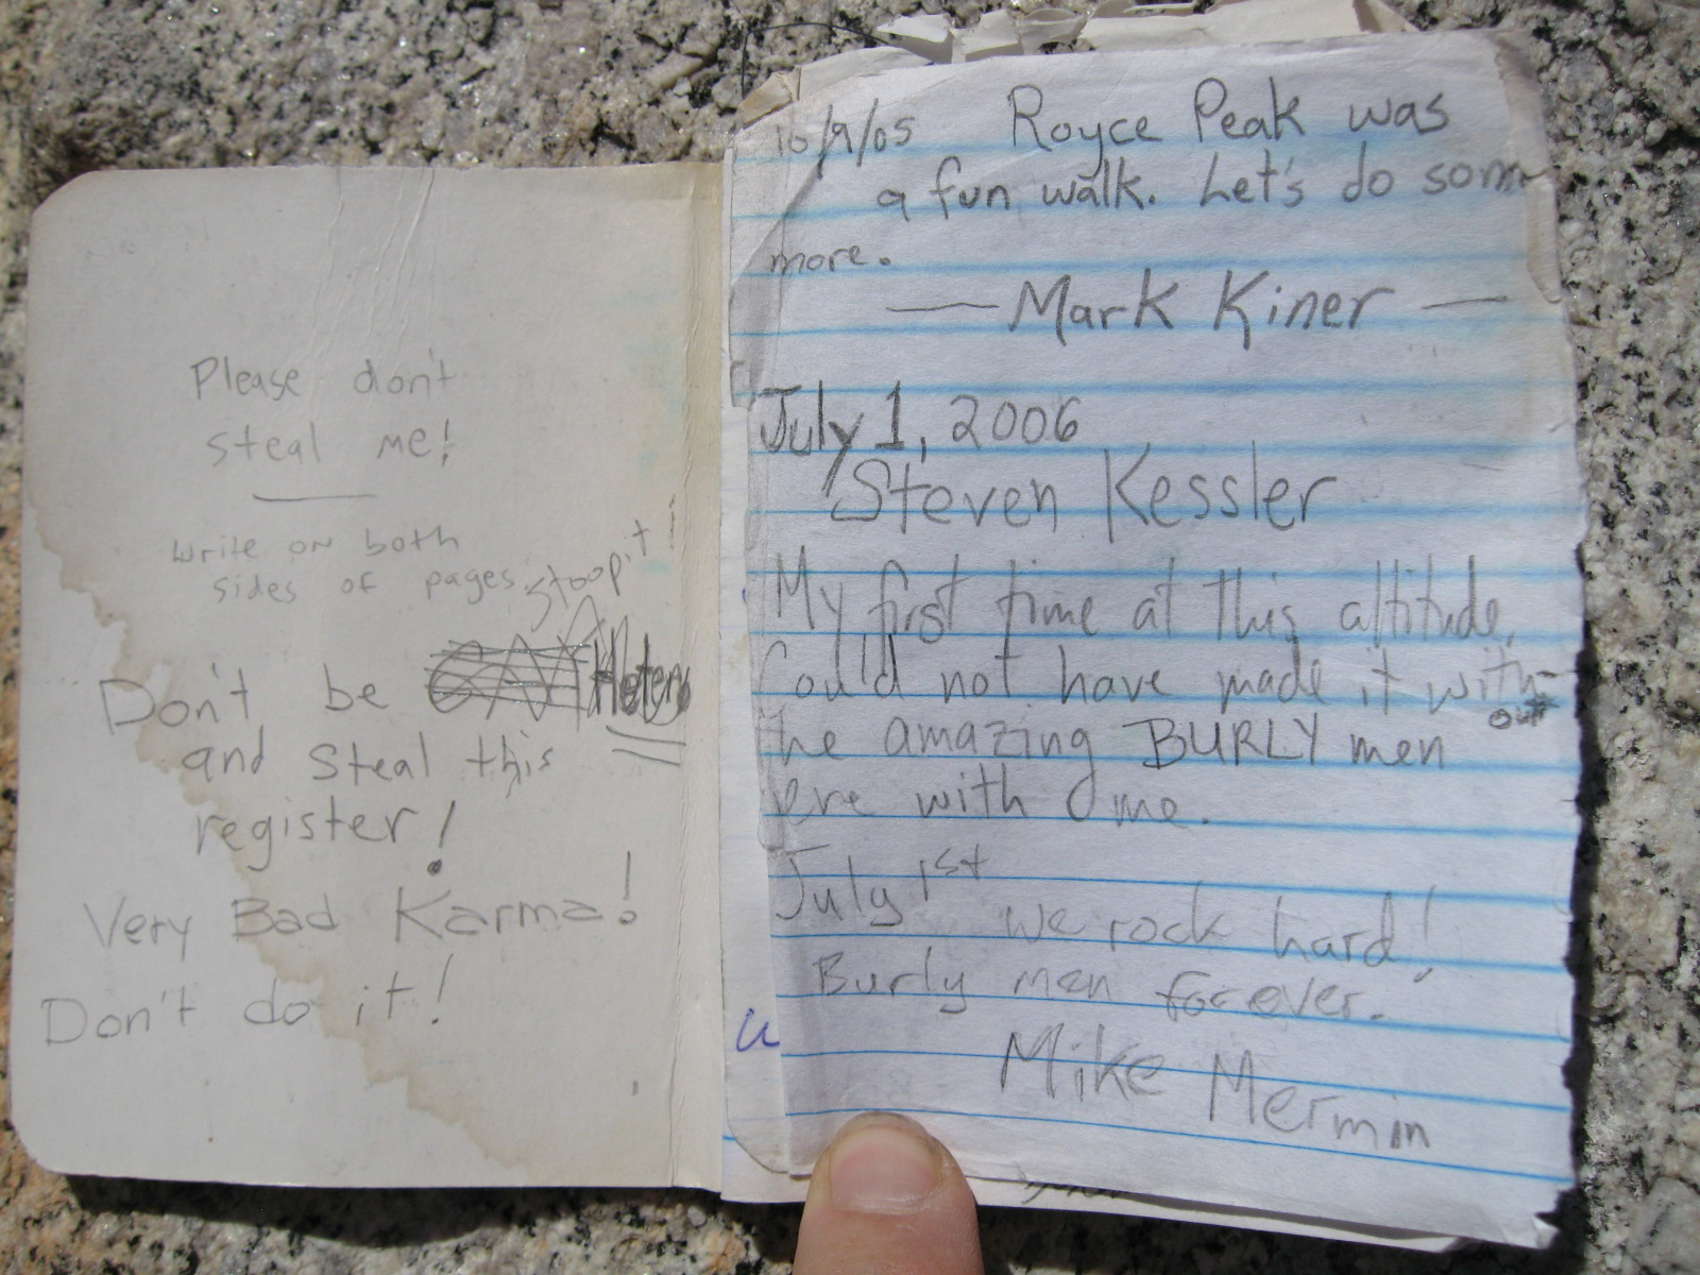 Please don't
steal me!
Write on both
sides of pages
stoopit!
Don't be
and steal this
register!
Very Bad Karma!
Don't do it!
10/9/05 Royce Peak was
a fun walk. Let's do som
more.
— Mark Kiner —
July 1, 2006
Steven Kessler
My first time at this altitude.
Could not have made it with-
out
the amazing BURLY men
with me.
July 1st We rock hard!
Burly men forever.
Mike Mermin